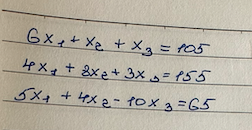 6x₁ + x₂ + x₃ = 105
4x₁ + 8x₂ + 3x₃ = 155
5x₁ + 4x₂ - 10x₃ = 65